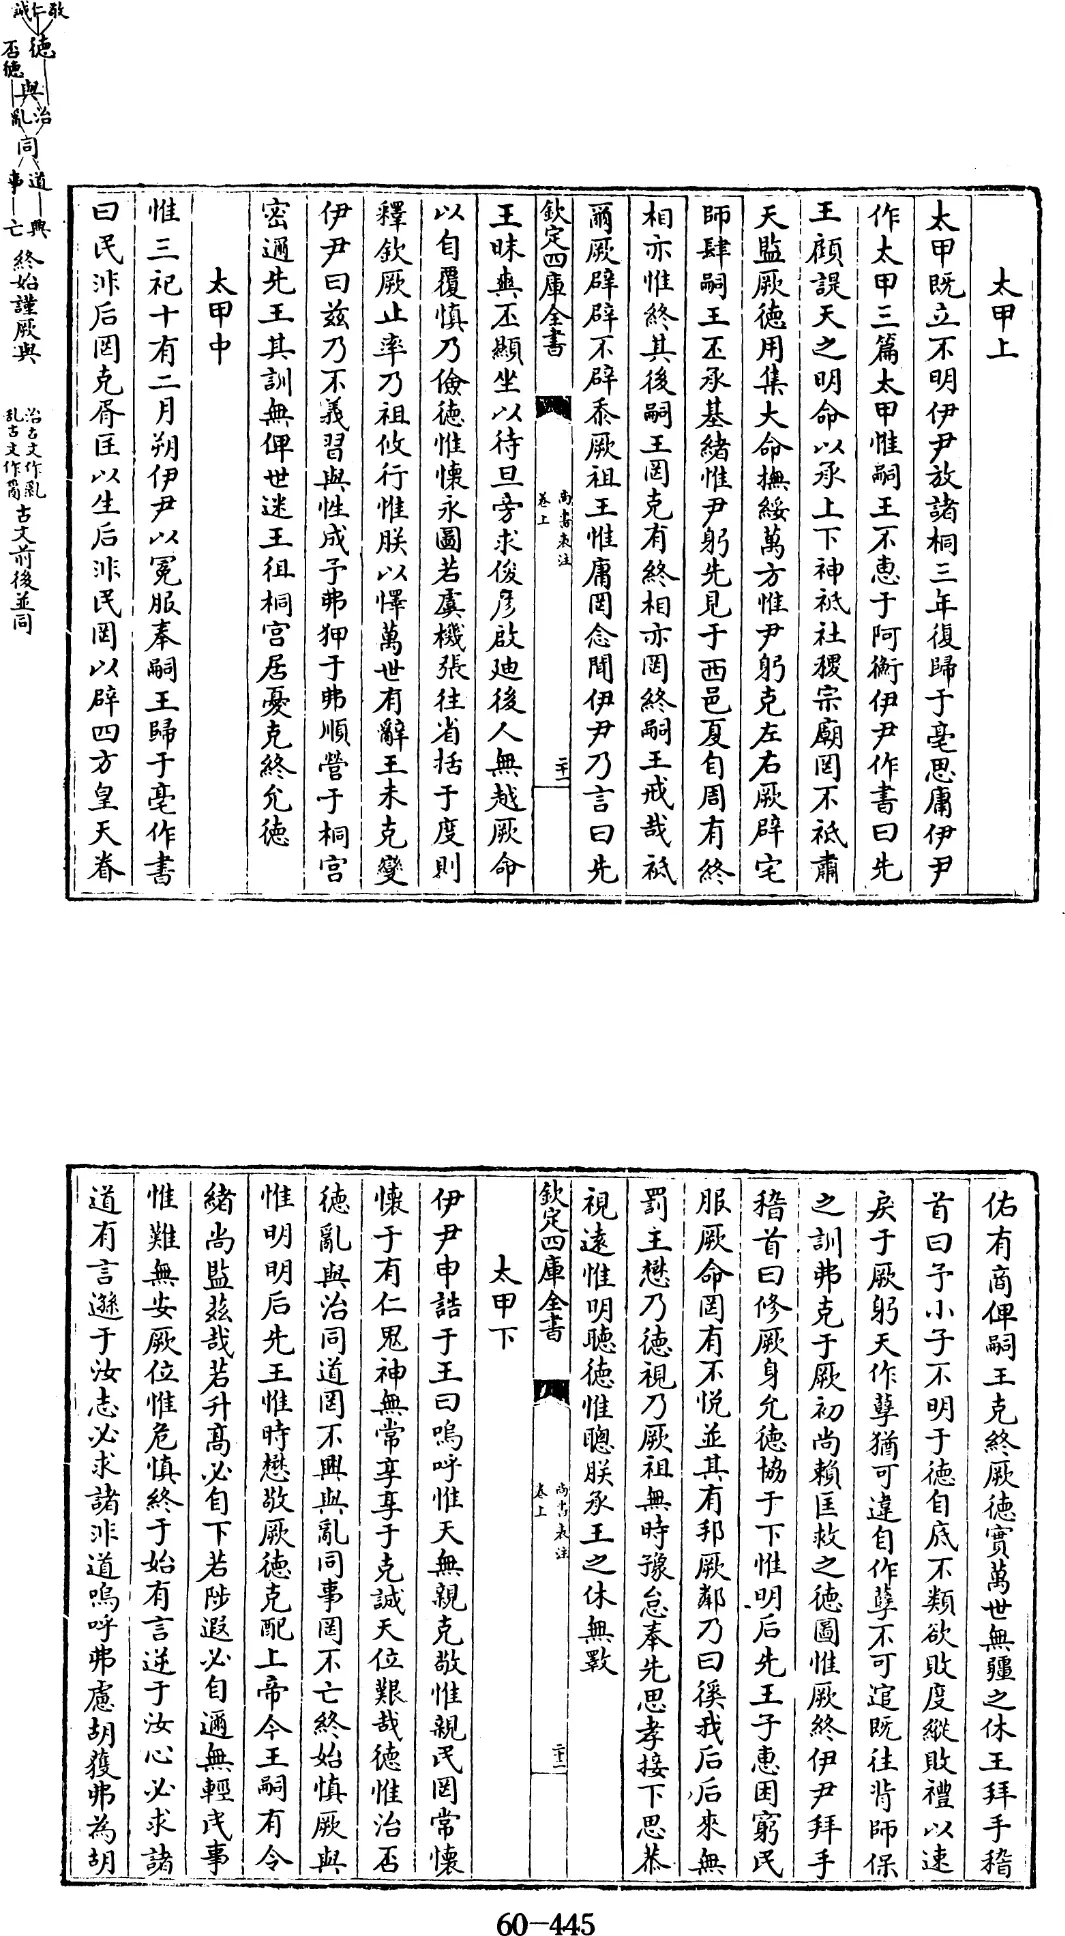 太甲上
太甲既立不明伊尹放諸桐三年復歸于亳思庸伊尹
作太甲三篇太甲惟嗣王不恵于阿衡伊尹作書曰先
王顧諟天之明命以承上下神祗社稷宗廟罔不祗肅
天監厥德用集大命撫綏萬方惟尹躬克左右厥辟宅
師肆嗣王丕承基緒惟尹躬先見于西邑夏自周有終
相亦惟終其後嗣王罔克有終相亦罔終嗣王戒哉祗
爾厥辟辟不辟忝厥祖王惟庸罔念聞伊尹乃言曰先
欽定四庫全書
尚書表注
卷上
二十一
王昧爽丕顯坐以待旦旁求俊彥啟迪後人無越厥命
以自覆慎乃儉德惟懷永圖若虞機張往省括于度則
釋欽厥止率乃祖攸行惟朕以懌萬世有辭王未克變
伊尹曰茲乃不義習與性成予弗狎于弗順營于桐宮
密邇先王其訓無俾世迷王徂桐宮居憂克終允德
太甲中
惟三祀十有二月朔伊尹以冕服奉嗣王歸于亳作書
曰民非后罔克胥匡以生后非民罔以辟四方皇天眷
敬仁誠
德 否德
與
治亂
同
道事
興亡
終始謹厥與
治古文作亂
乱古文作𤔔
古文前後並同
佑有商俾嗣王克終厥德實萬世無疆之休王拜手稽
首曰予小子不明于德自底不類欲敗度縱敗禮以速
戾于厥躬天作孽猶可違自作孽不可逭既往背師保
之訓弗克于厥初尚賴匡救之德圖惟厥終伊尹拜手
稽首曰修厥身允德協于下惟明后先王子惠困窮民
服厥命罔有不悅並其有邦厥鄰乃曰徯我后后來無
罰王懋乃德視乃厥祖無時豫怠奉先思孝接下思恭
視逺惟明聽德惟聰朕承王之休無斁
欽定四庫全書
尚書表注
卷上
二十二
太甲下
伊尹申誥于王曰嗚呼惟天無親克敬惟親民罔常懷
懷于有仁鬼神無常享享于克誠天位艱哉德惟治否
德亂與治同道罔不興與亂同事罔不亡終始慎厥與
惟明明后先王惟時懋敬厥德克配上帝今王嗣有令
緒尚監茲哉若升高必自下若陟遐必自邇無輕民事
惟難無安厥位惟危慎終于始有言逆于汝心必求諸
道有言遜于汝志必求諸非道嗚呼弗慮胡獲弗為胡
60-445